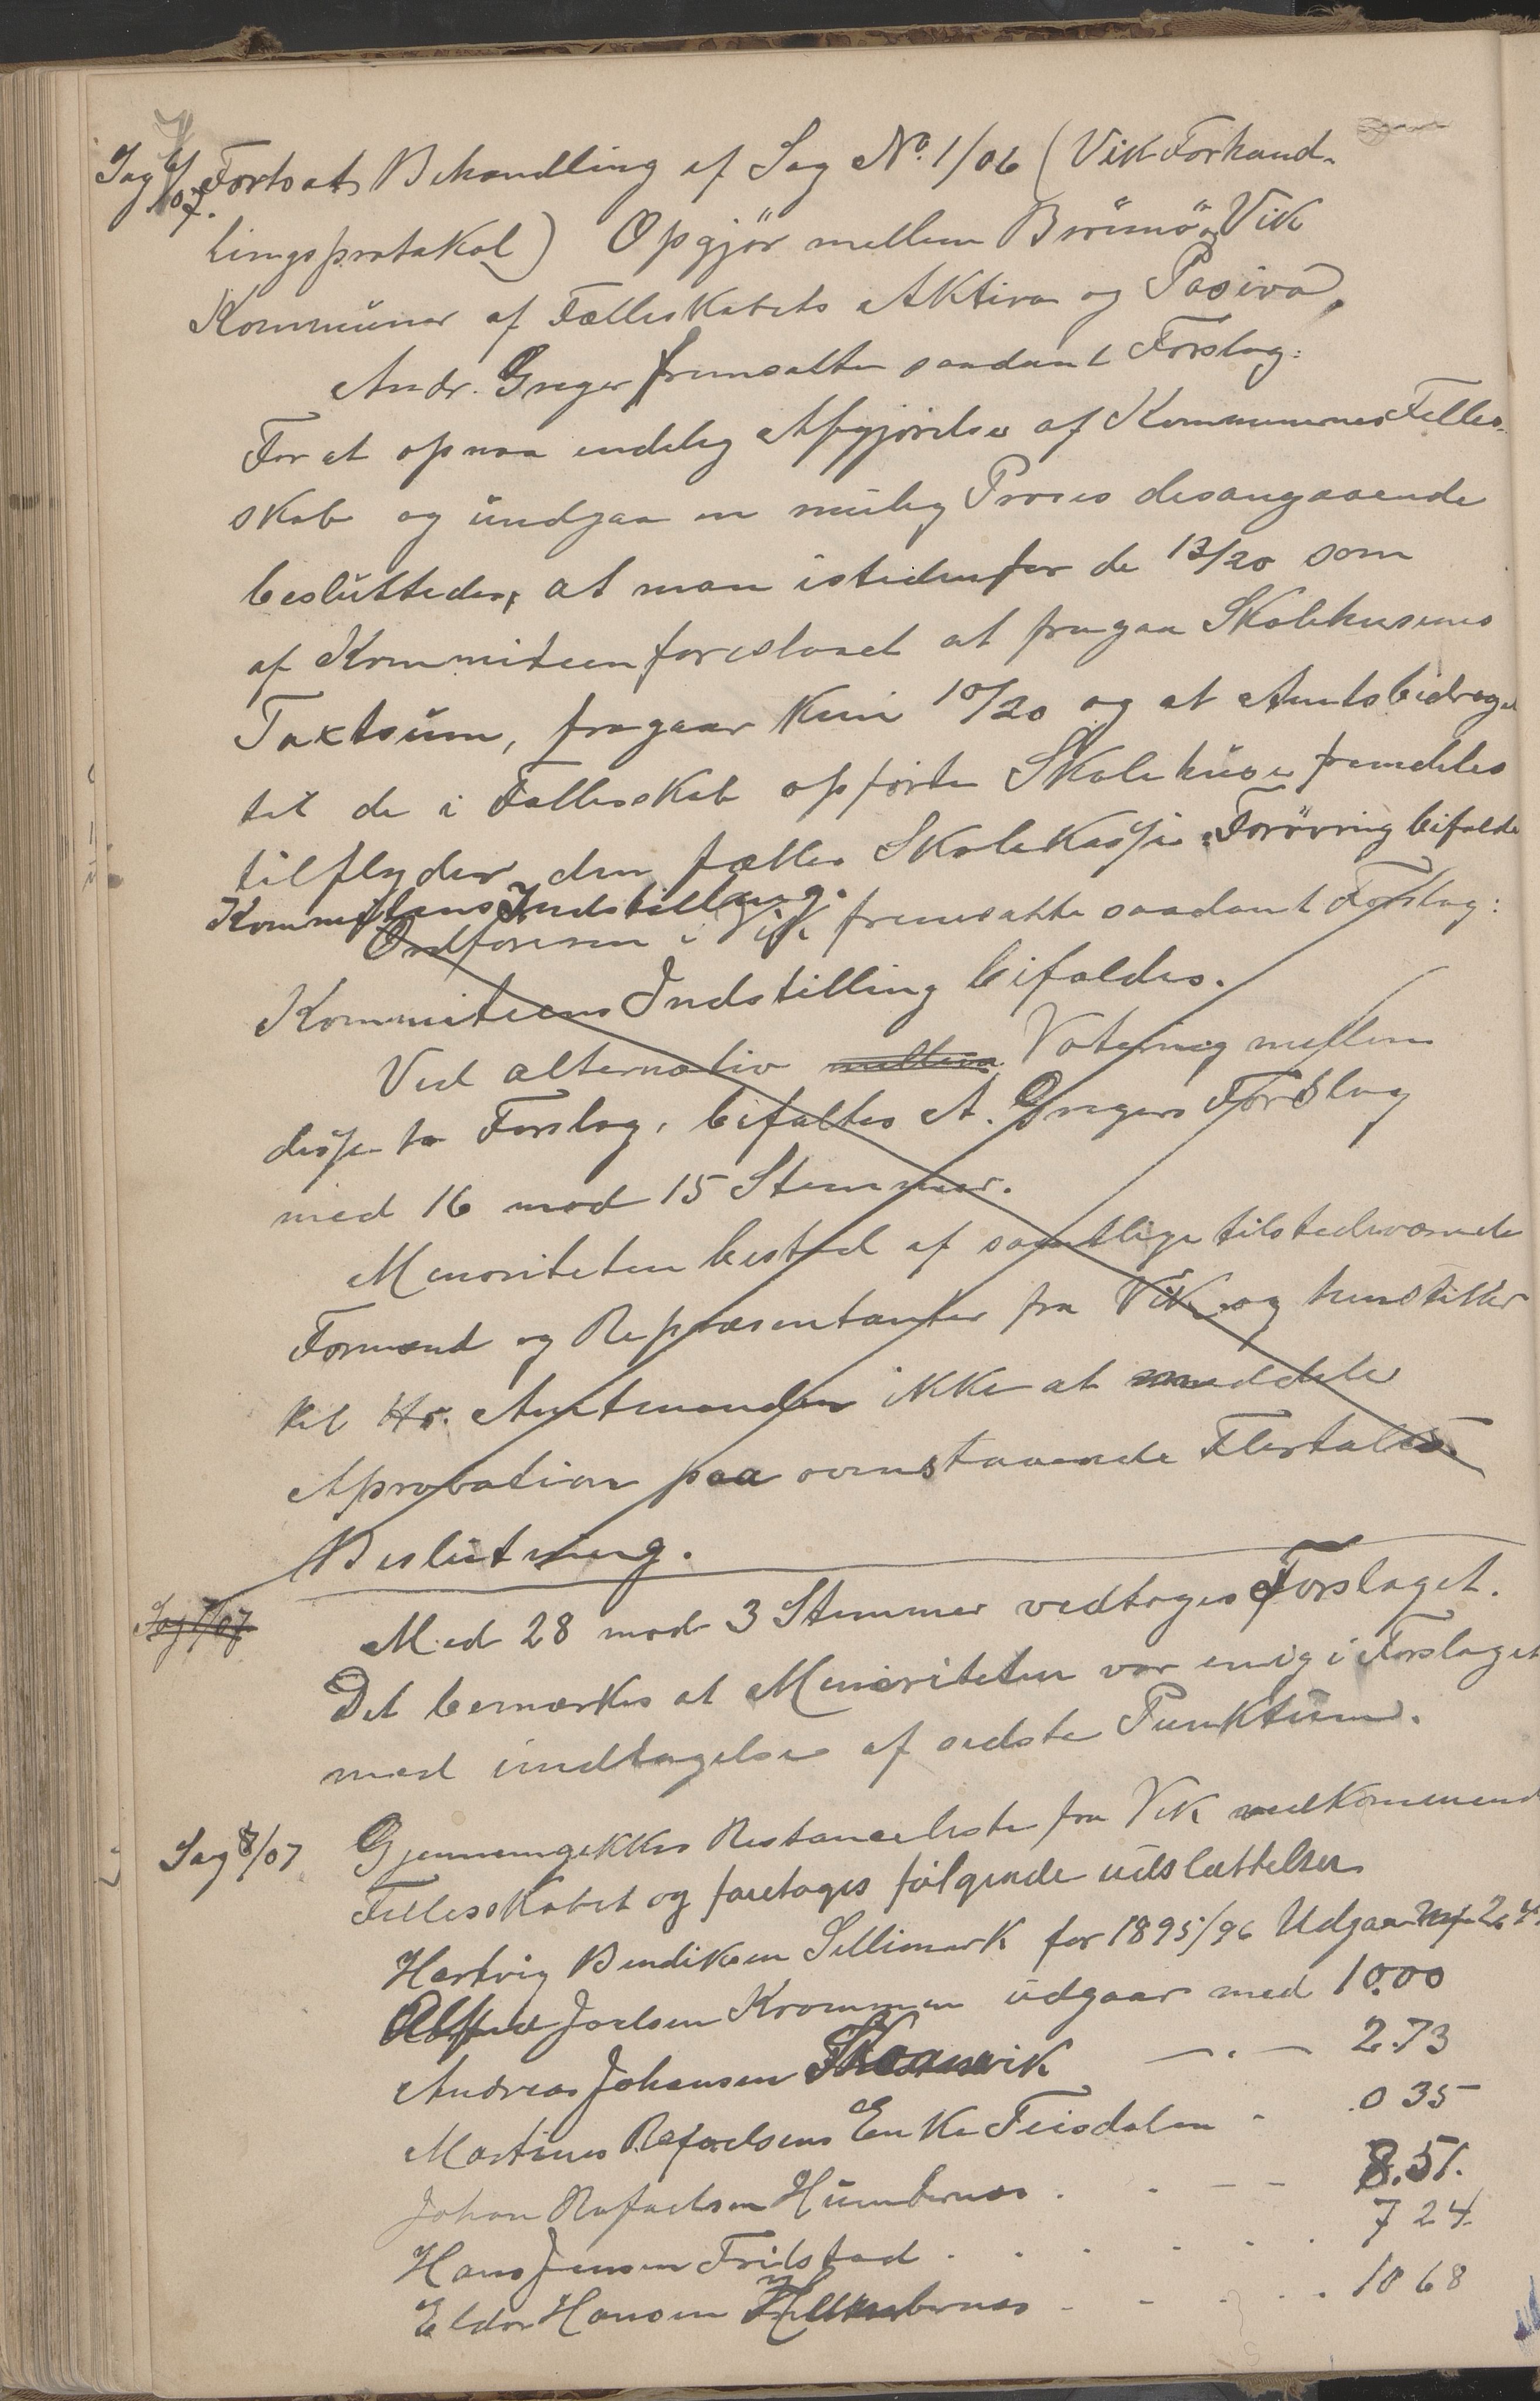 Sag 6/07. Fortsat Behandling af Sag No. 1/06 (Vik Forhand-
lingsprotokol) Opgjör mellem Brönnö og Vik
Kommuner af Fælleskabets Aktiva og Pasiva.
Andr. Greger fremsatte saadant Forslag:
For at opnaa endelig Afgjörelse af Kommunernes Felles-
skab og undgaa en mulig Proses desangaaende
besluttedes, at man istedenfor de 13/20 som
af Kommiteen foreslaaet at fragaa Skolehusenes
Taxtsum, fragaar kun 10/20 og at Amtsbidraget
til de i Fællesskab opförte Skolehuse fremdeles
tilflyder den fælles Skolekasse. Forövrig bifaldes
Kommiteens Indstilling.
Ordföreren i Vik fremsatte saadant Forslag:
Kommiteens Indstilling bifaldes.
Ved alternativ mellem Votering mellem
disse to Forslag, bifaltes A. Gregers Forslag
med 16 mod 15 Stemmer.
Menoriteten bestod af samtlige tilstedeværende
Formænd og Repræsentanter fra Vik og henstiller
til Hr. Amtmanden ikke at meddele
Aprobation paa ovenstaaende Flertals
Beslutning.
Sag 7/07
Med 28 mod 3 Stemmer vedtoges Forslaget.
Det bemærkes at Menoriteten var enig i Forslaget
med undtagelse af sidste Punktum.
Sag 8/07 Gjennemgikkes Restanceliste fra Vik vedkommende
Fellesskabet og foretoges fölgende udslættelser
Hartvig Bendiksen Sellimark for 1895/96 Udgaar
Joelsen Krommen udgaar med 10.00
Andreas Johansen — . — 2.73
Martines Rafaelsens Enke Teisdalen - 0 35
Johan Rafaelsen Humbernes . . - - 8.51.
Hans Jensen Trilstad . . . . . . 7 24.
Eldor Hansen . . . . . 10 68